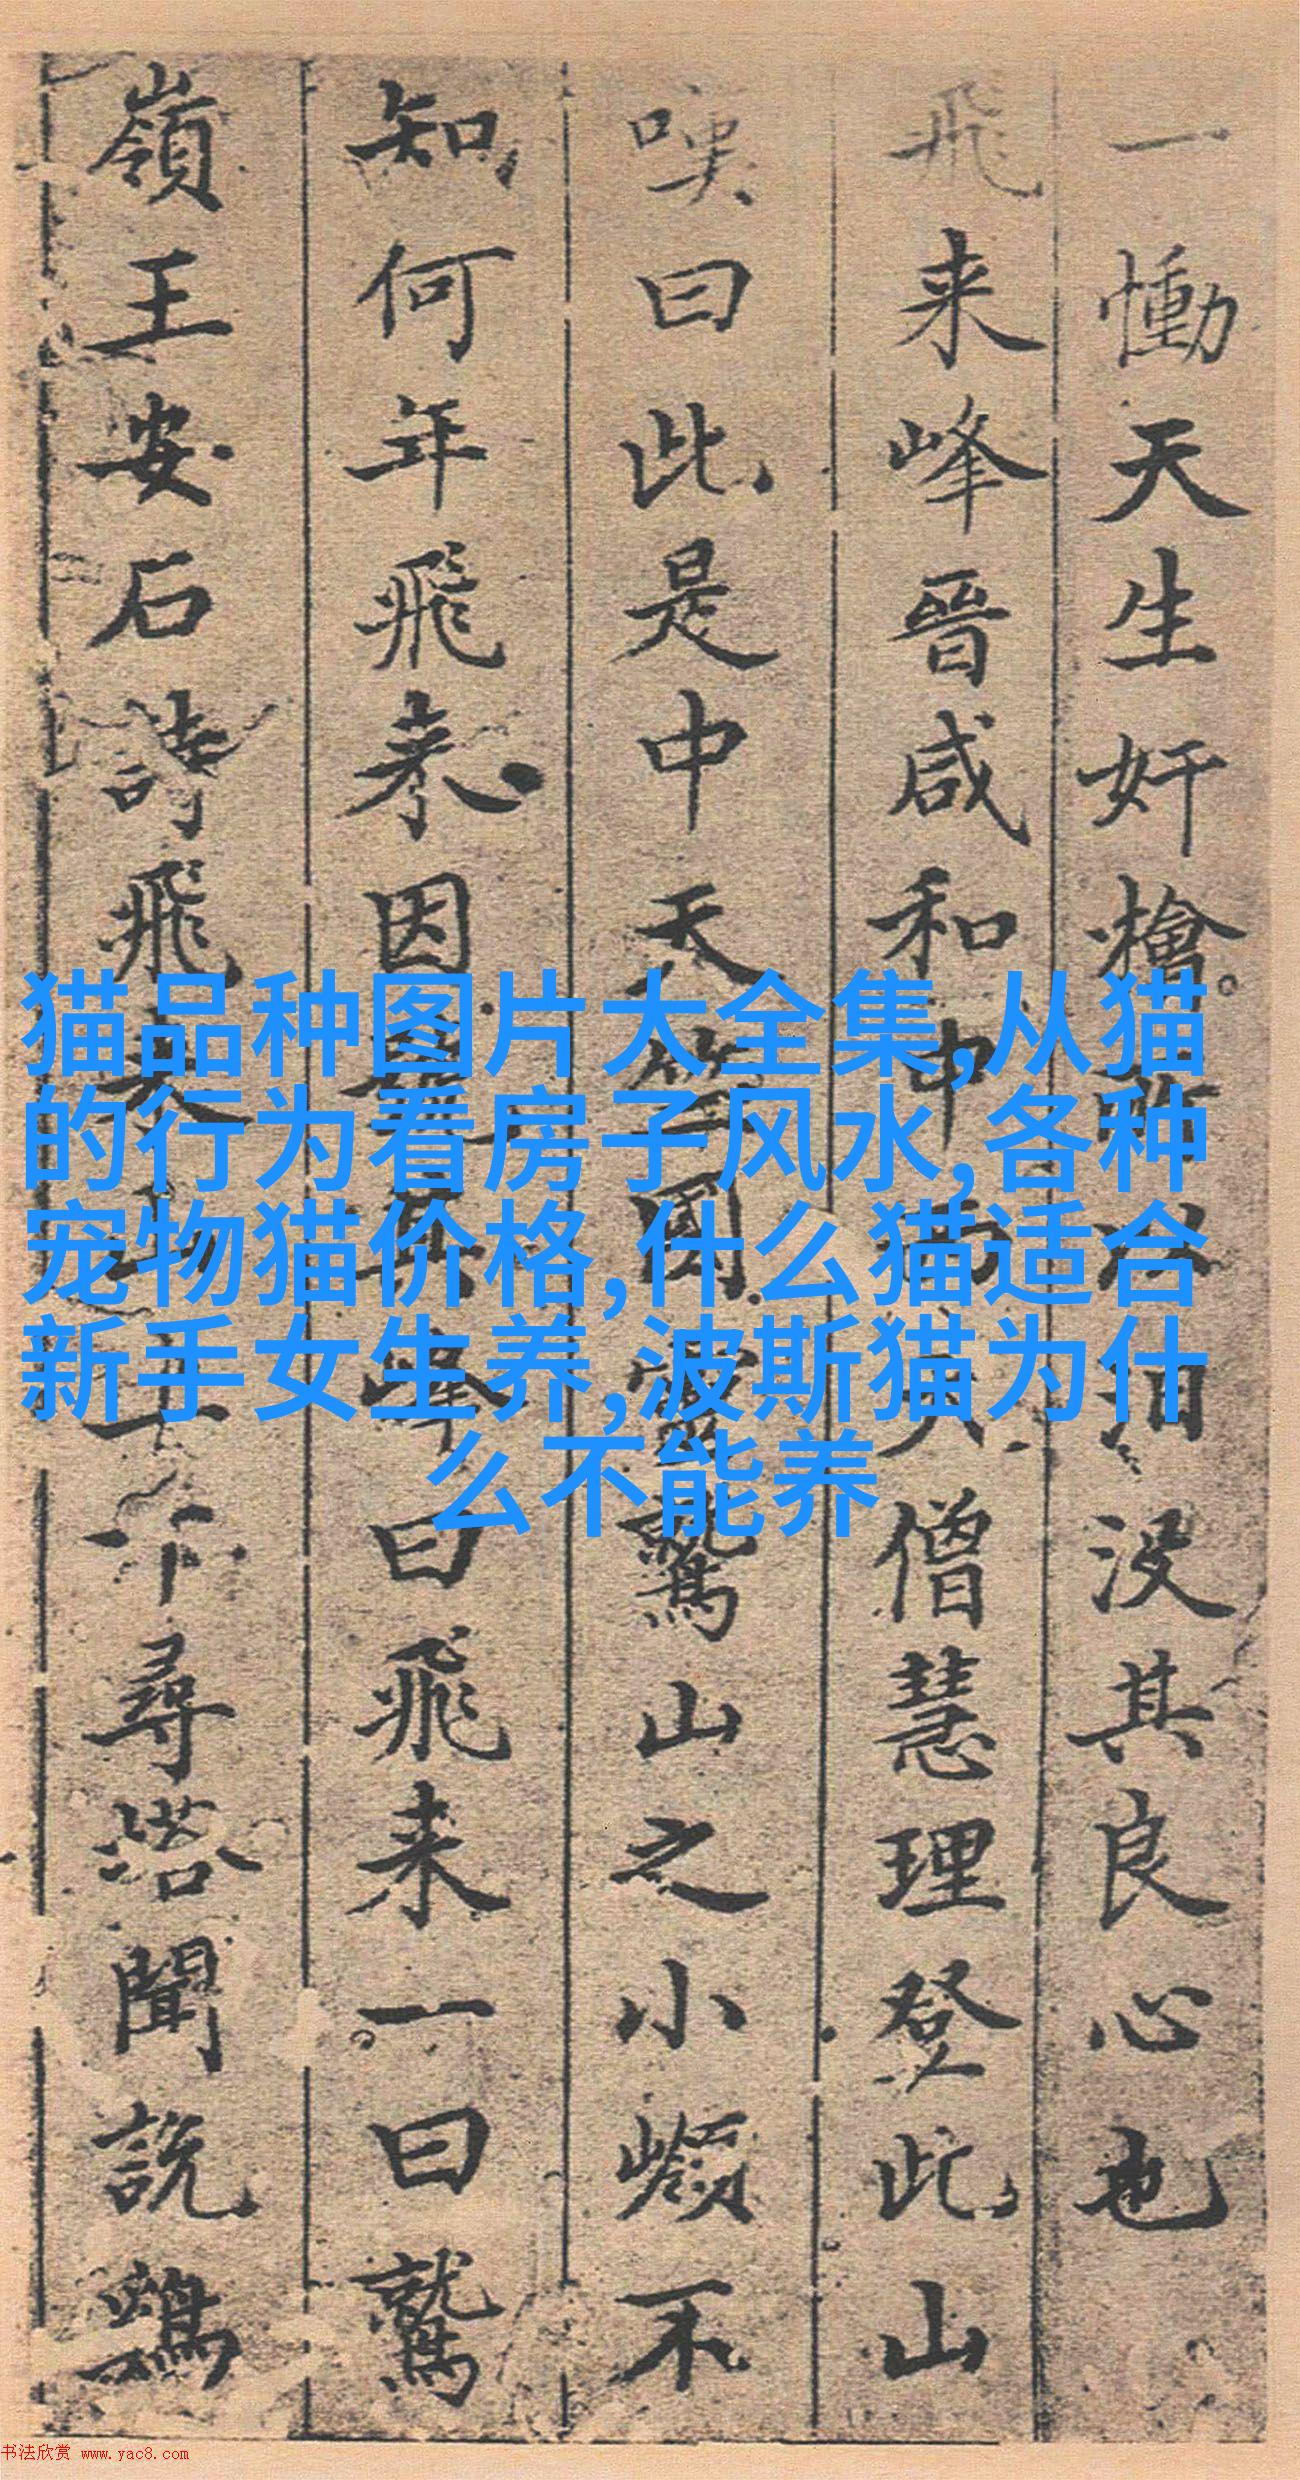 一慟天生奸檜
没其良心也
飛来峰晉咸和中
僧慧理登此山
嘆曰此是中天竺國
靈鷲山之小嶺不
知何年飛来因
曰飛来一曰鷲
嶺王安石詩飛来
尋塔聞說鷄
猫品种图片大全集,从猫
的行为看房子风水,各种
宠物猫价格,什么猫适合
新手女生养,波斯猫为什
么不能养
书法欣赏 www.yac8.com